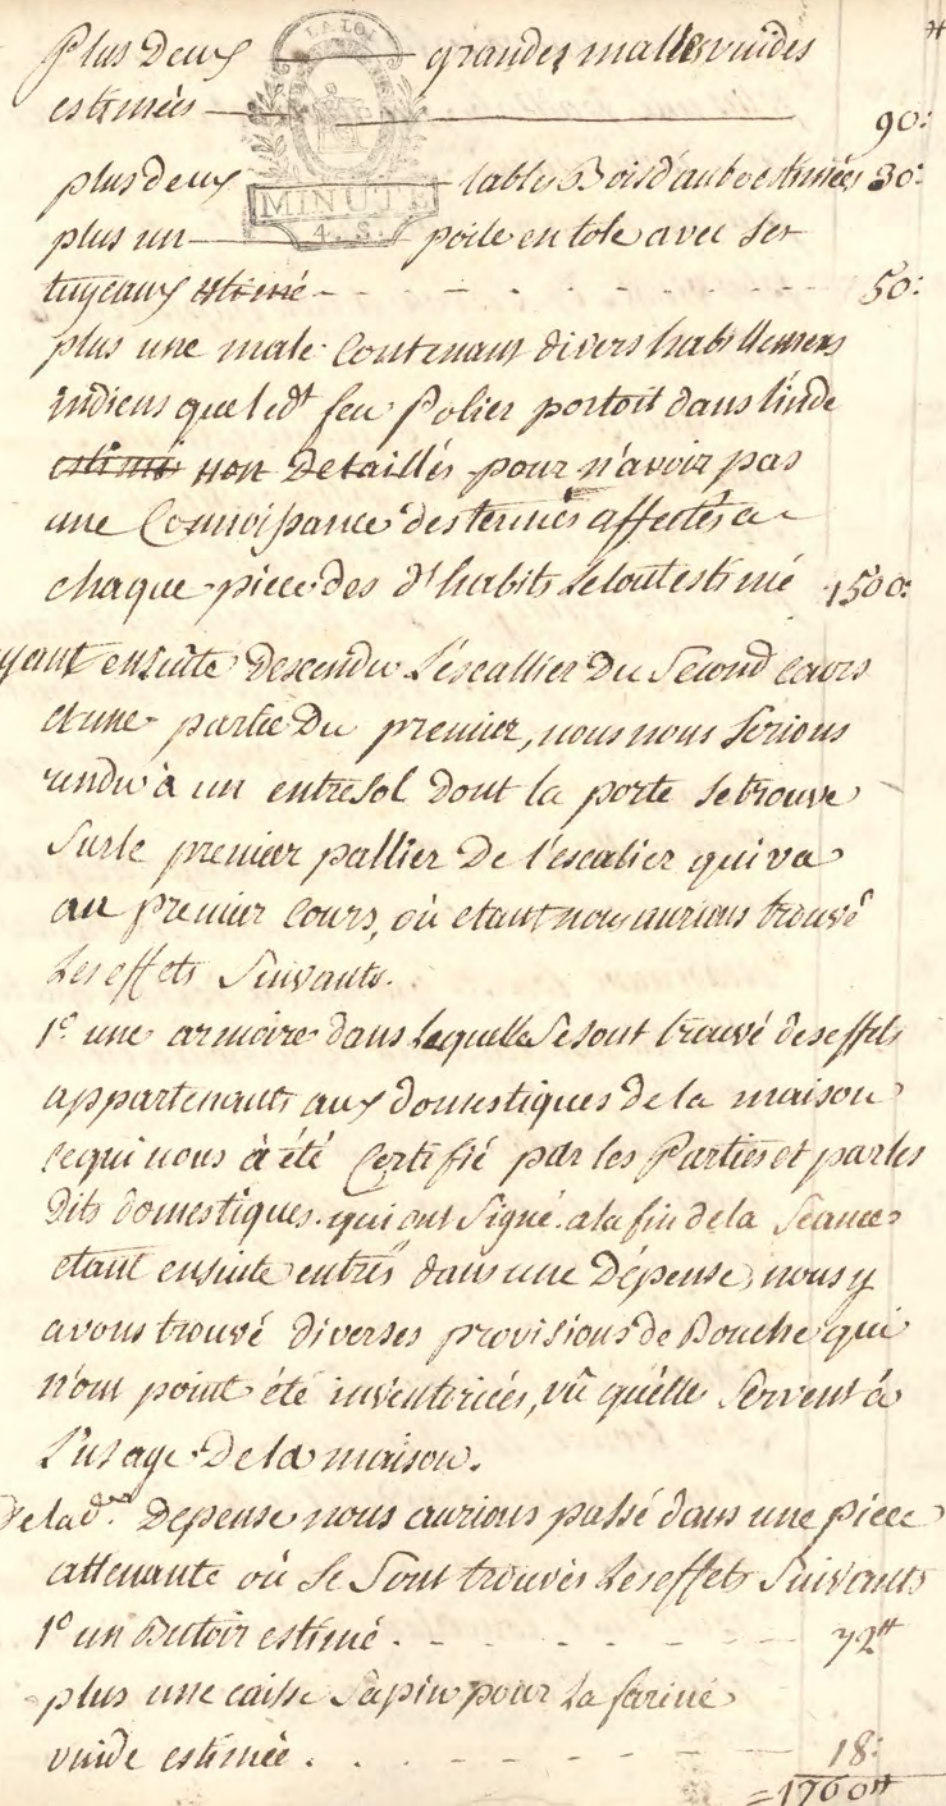 Plus Deux grandes malles vuides
estimées 90:
plus deux tables Bois d'aube estimées 30:
plus un poile en tole avec ses
tuyeaux estimé 50:
plus une male contenant divers habillemens
indiens que led.t feu Polier portoit dans l'inde
estimé non detaillés pour n'avoir pas
une Connoissance des termes affectés a
chaque piece des d.t habits le tout estimé 1500:
yant ensuite Descendu L'escallier Du Second cours
et une partie Du premier, nous nous serions
rendu à un entresol dont la porte se trouve
sur le premier pallier De l'escalier qui va
au premier Cours, où etant nous aurions trouvé
Les effets Suivants.
1.o une armoire dans laquelle se sont trouvé des effets
appartenants aux domestiques de la maison
ce qui nous à été certifié par les Parties et par les
Dits domestiques qui ont signé a la fin de la Séance
etant ensuite entrés dans une Dépense, nous y
avons trouvé diverses provisions de Bouche qui
n'ont point été inventoriées, vû qu'elle servent à
L'usage De la maison.
De la d.te Depense nous aurions passé dans une piece
attenante où se sont trouvés Les effets Suivants
1.o un Butoir estimé 72#
plus une caisse Sapin pour la farine
vuide estimée 18:
=1760#
LA LOI
MINUTE
4. S.